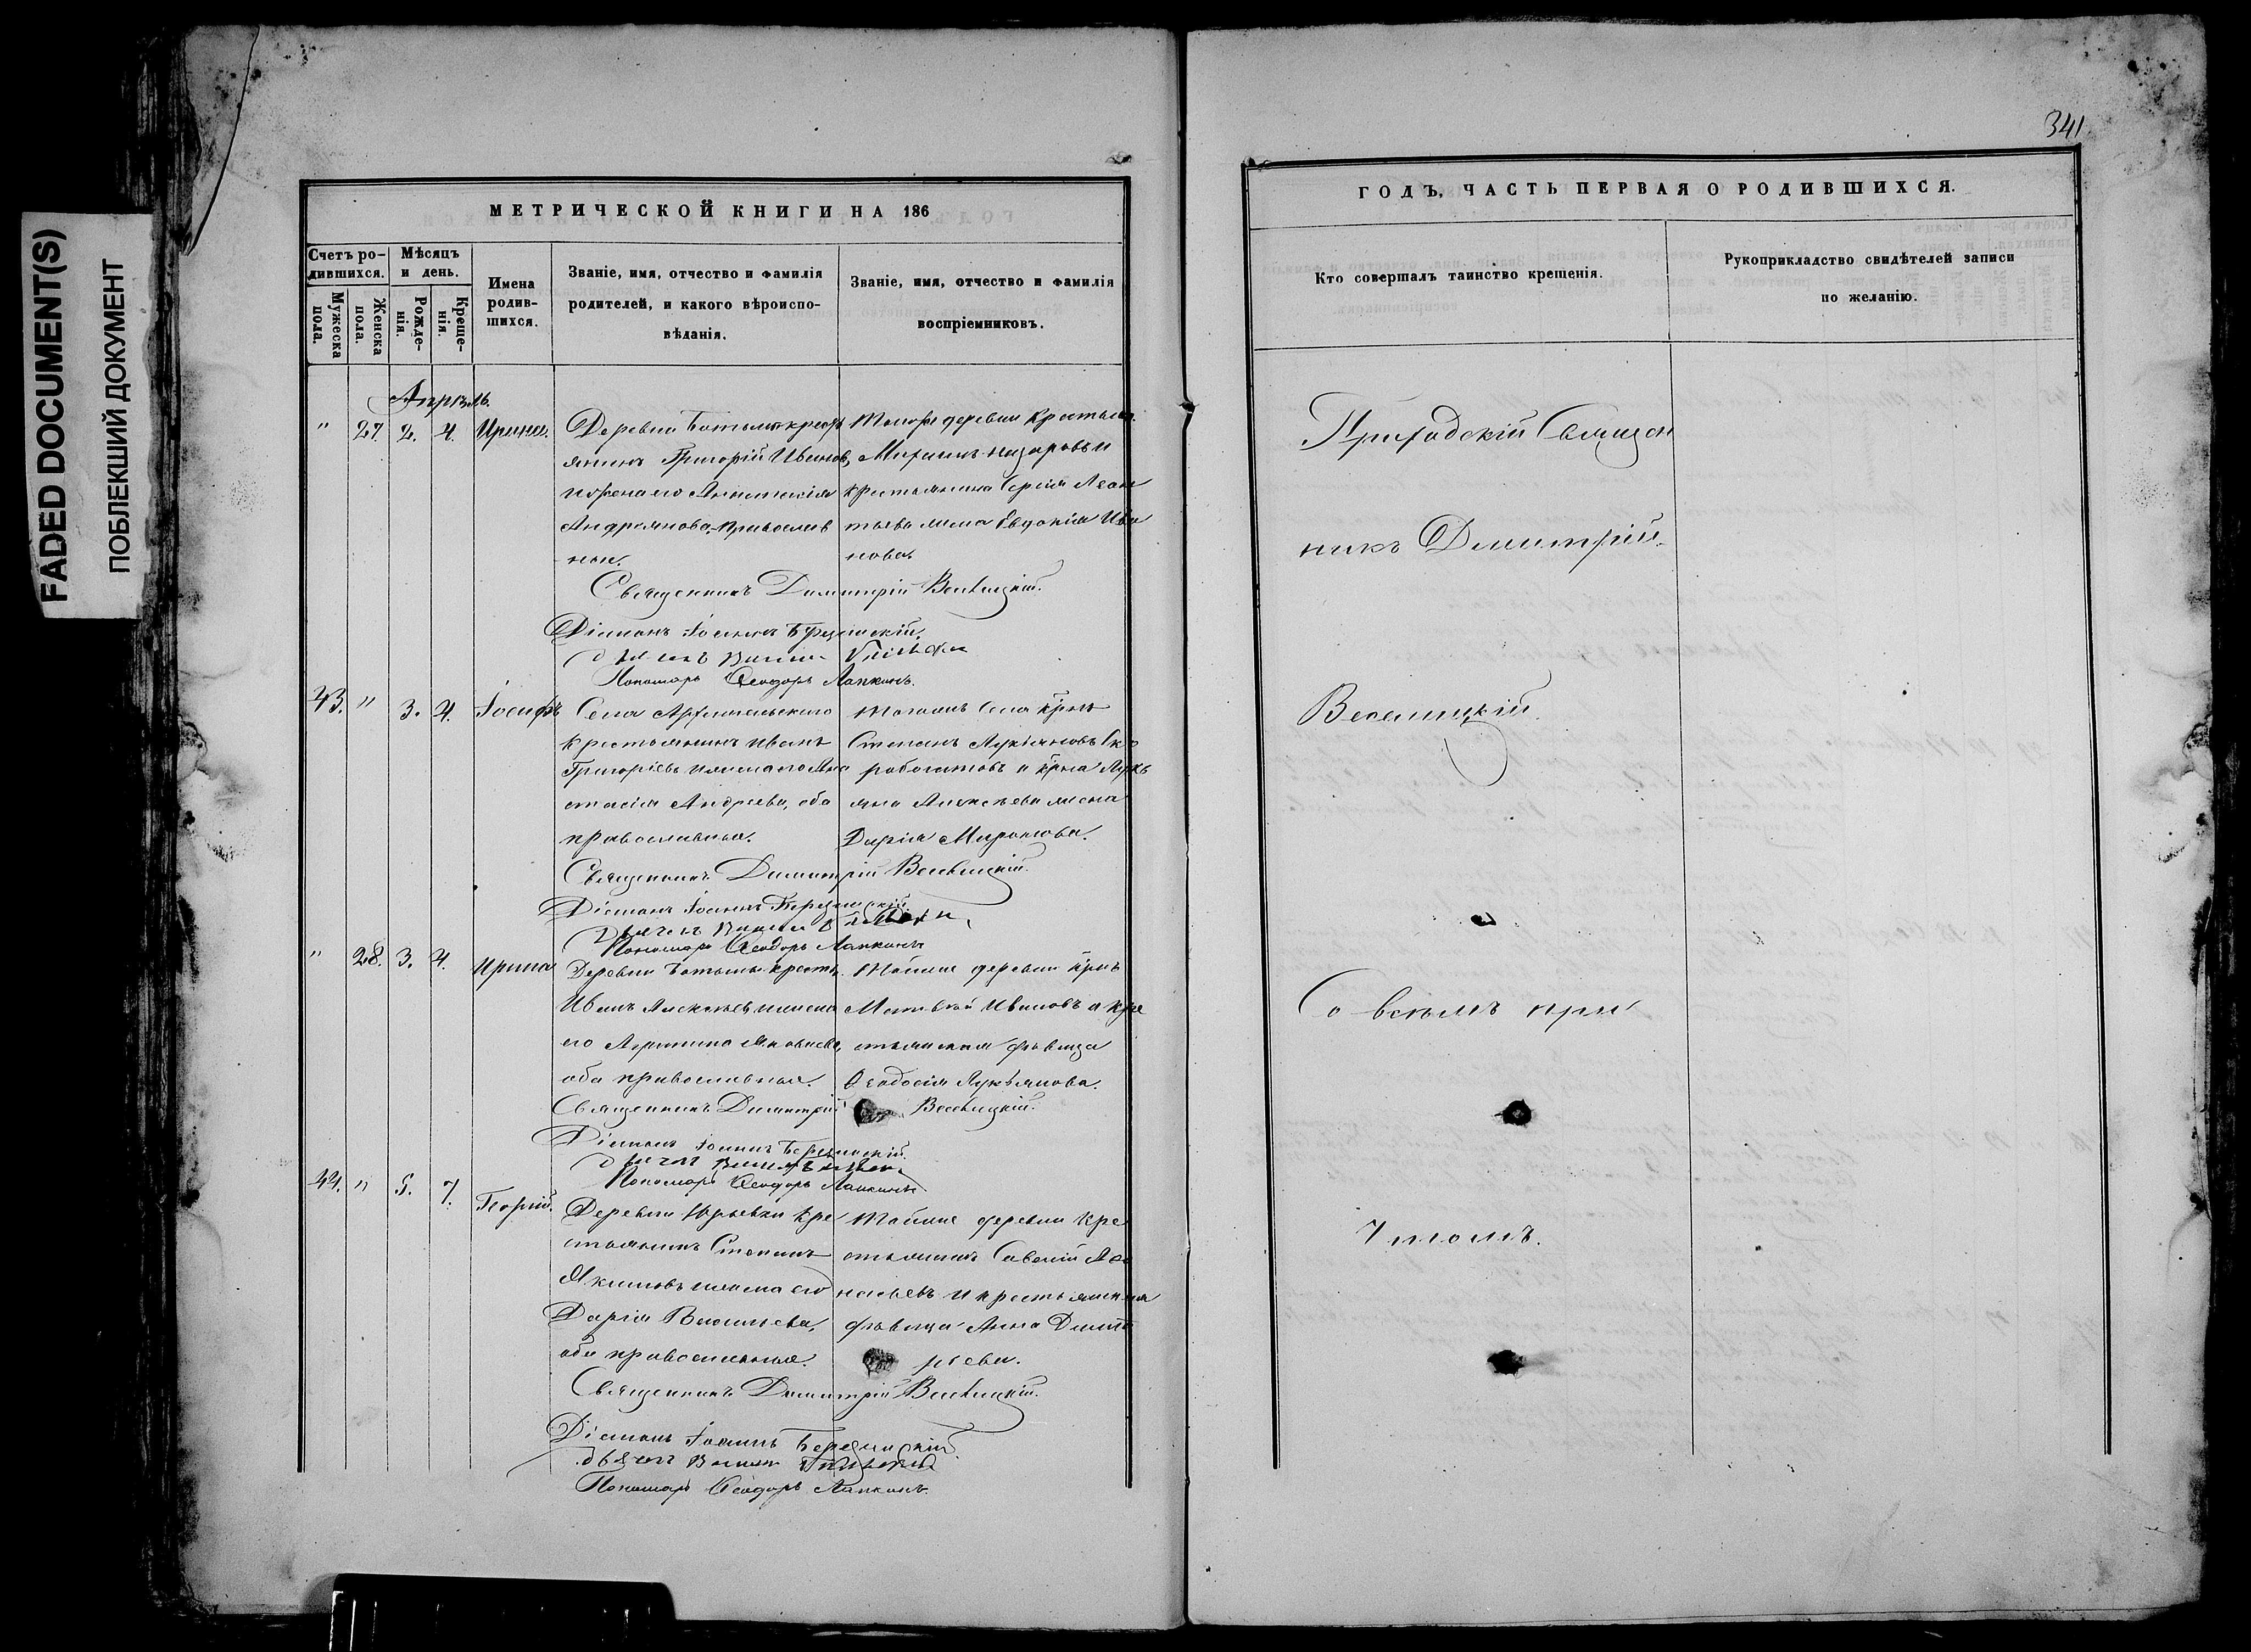 FADED DOCUMENT(S)
ПОБЛЕКШИЙ ДОКУМЕНТ
МЕТРИЧЕСКОЙ КНИГИ НА 186
Счетъ ро-
дившихся.
Мужеска
пола.
Женска
пола.
Мѣсяцъ
и день.
Рожде-
нія.
Креще-
нія.
Имена
родив-
шихся.
Званіе, имя, отчество и фамилія
родителей, и какого вѣроиспо-
вѣданія.
Званіе, имя, отчество и фамилія
воспріемниковъ.
Апрѣль.
" 27. 2. 4.
Деревни
Григорій Ивановъ,
и жена его Анастасія
Андреянова, православ
ныи.
Тойже деревни Крестьян.
Назаровъ и
крестьянина Сергія Леон
тьева жена Евдокія Ива
нова.
Священникъ Димитрій Веселицкій.
Діаконъ Іоаннъ
Пономарь Ѳеодоръ Лапкинъ.
43. " 3. 4. Іосифъ
Села Архангельскаго
крестьянинъ Иванъ
Григорьевъ и жена его Ана
стасія Андреева, оба
православные.
Тогожъ села крнъ
Степанъ Лукіановъ Ско
робогатовъ и крна Лукь
яна Алексѣева жена
Дарія Миронова.
Священникъ Димитрій Веселицкій.
Діаконъ Іоаннъ
Пономарь Ѳеодоръ Лапкинъ
" 28. 3. 4. Ирина
Деревни
Иванъ Алексѣевъ и жена
его Яковлева,
оба православные.
Тойже деревни крнъ
Матвѣй Ивановъ и кре
стьянская дѣвица
Ѳеодосія Лукьянова.
Священникъ Димитрій Веселицкій.
Діаконъ Іоаннъ
Пономарь Ѳеодоръ Лапкинъ
44. " 5. 7. Георгій.
Деревни Юрьевки кре
стьянинъ Степанъ
Якимовъ и жена его
Дарія Васильева,
оба православные.
Тойже деревни кре
стьянинъ Савелій Аѳа
насьевъ и крестьянская
дѣвица Анна Димит
ріева.
Священникъ Димитрій Веселицкій.
Діаконъ Іоаннъ
Пономарь Ѳеодоръ Лапкинъ.
341
ГОДЪ, ЧАСТЬ ПЕРВАЯ О РОДИВШИХСЯ.
Кто совершалъ таинство крещенія.
Рукоприкладство свидѣтелей записи
по желанію.
Приходскій Священ
никъ Димитрій
Веселицкій
Со всѣмъ при
чтомъ.